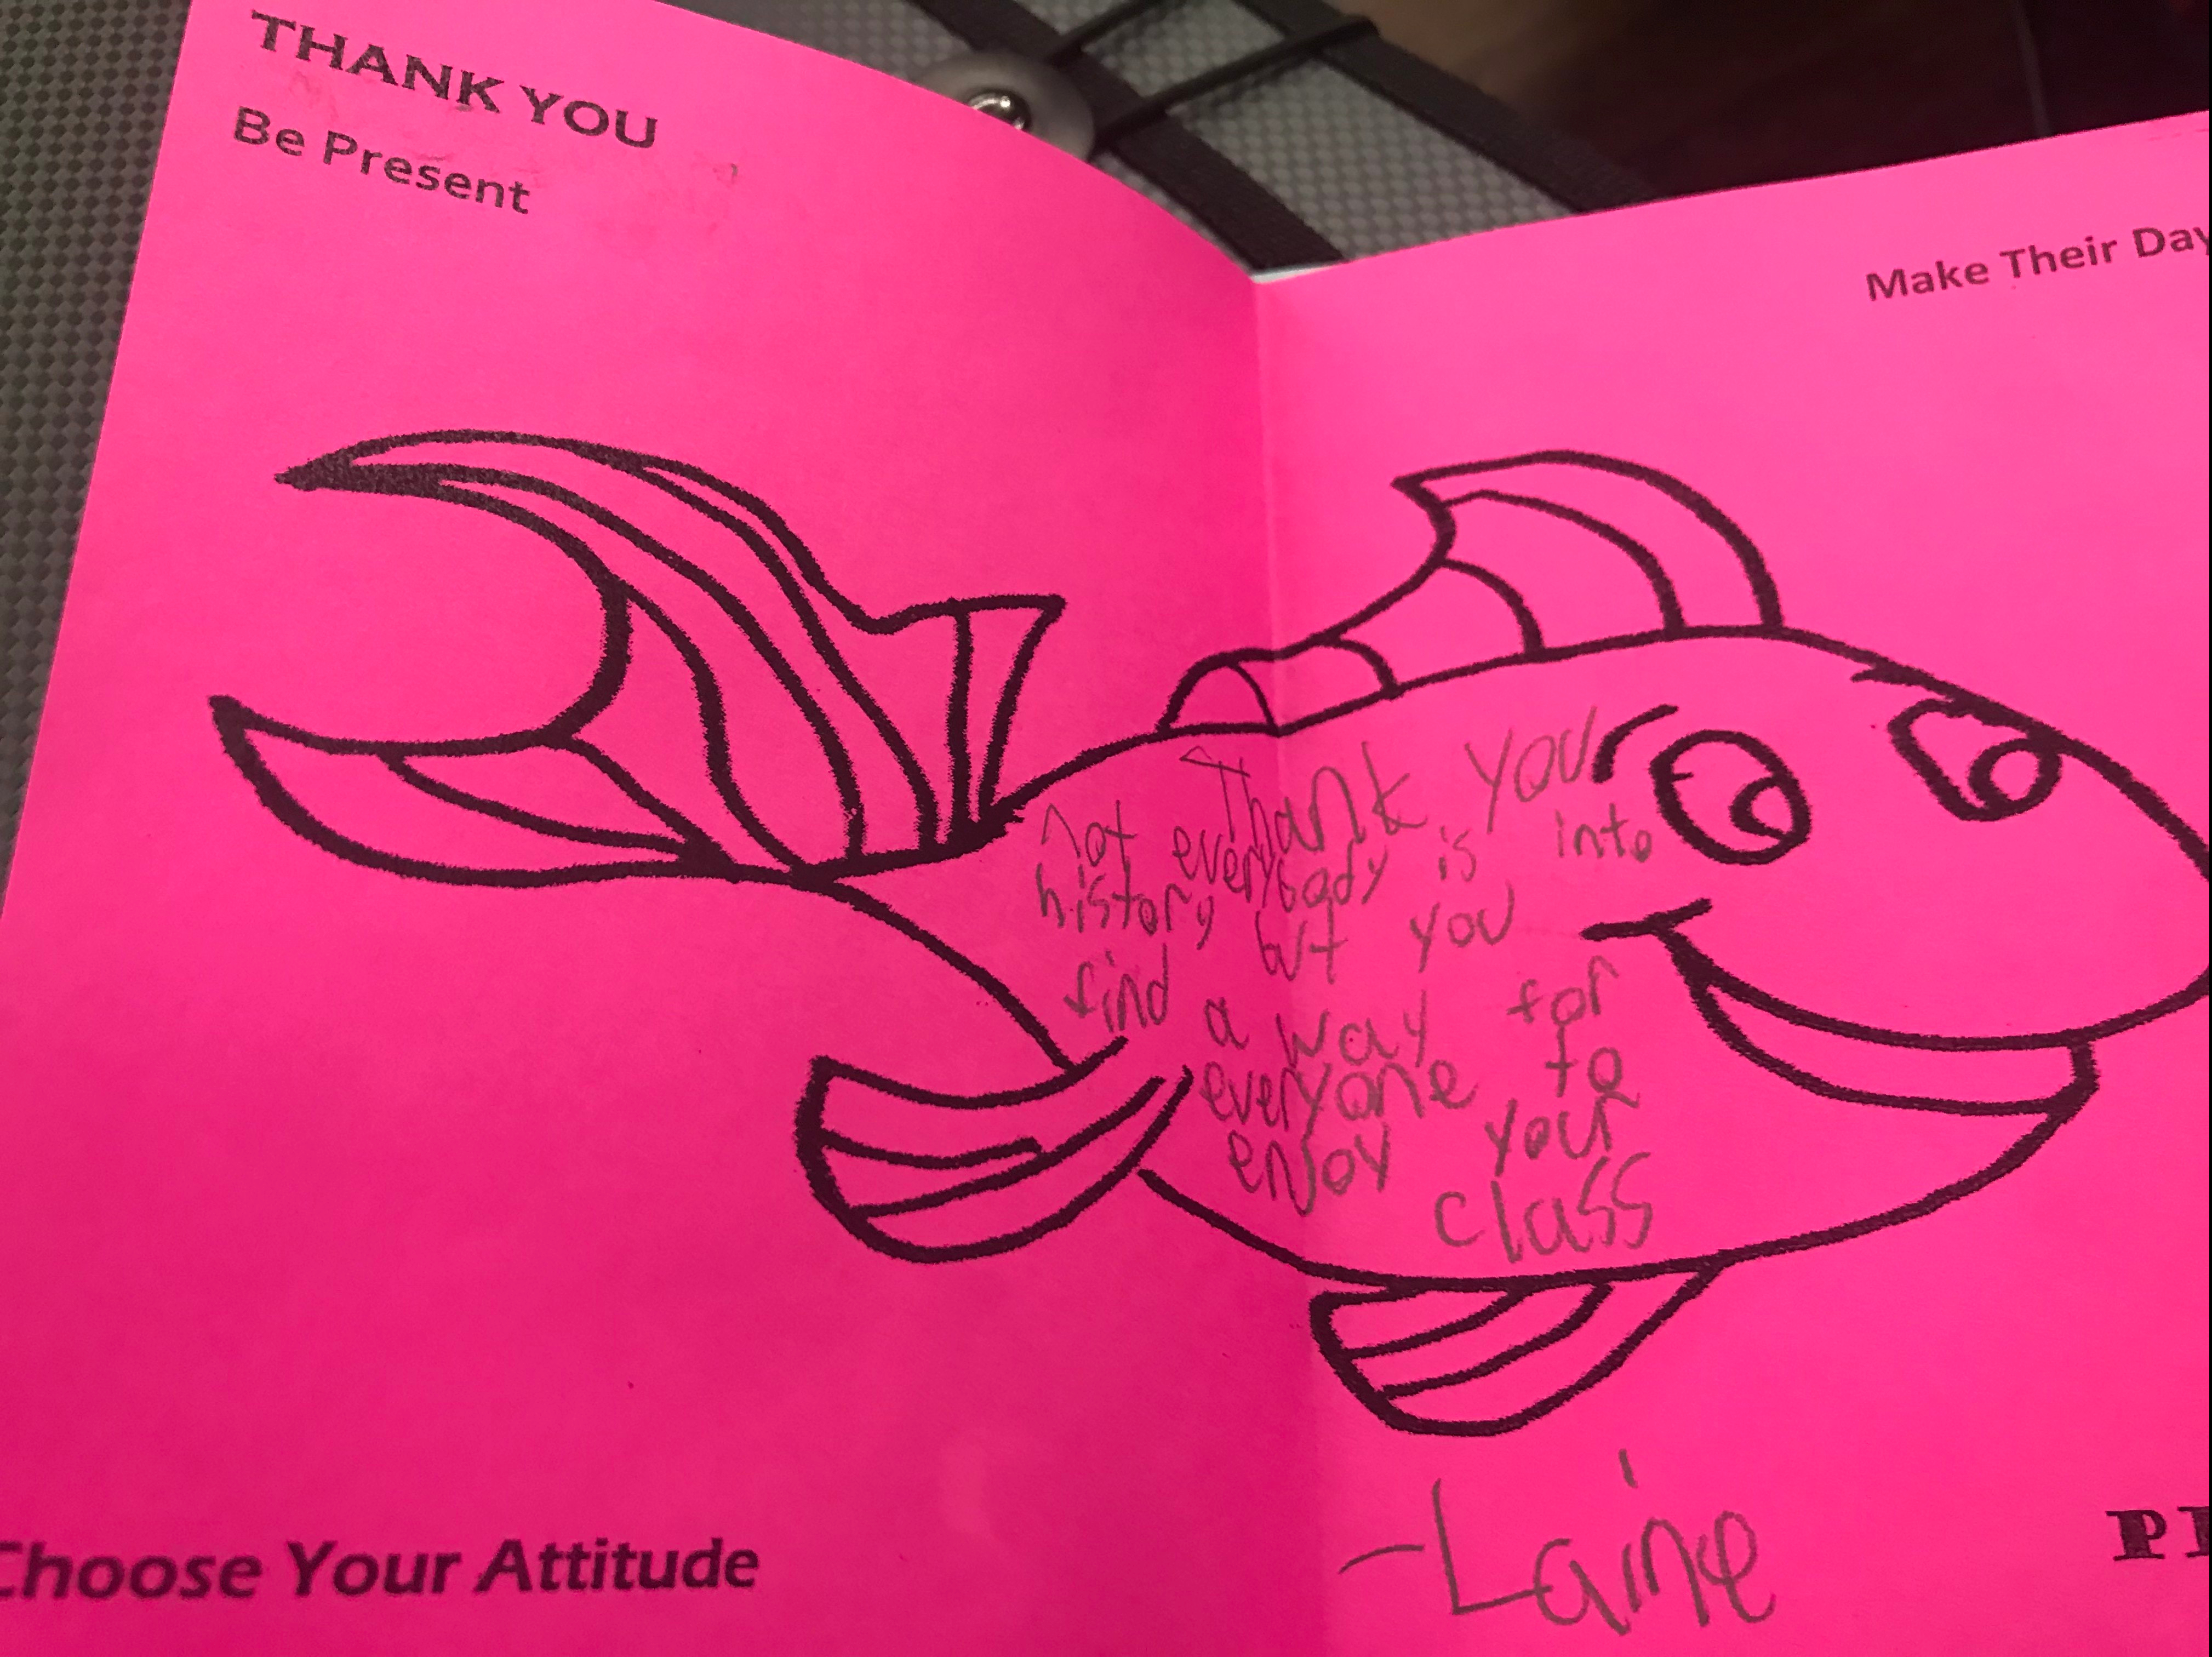 THANK YOU
Be Present
Make Their Day
Thank you
not everybody is into
history but you
find a way for
everyone to
enjoy your
class
-Laine
Choose Your Attitude